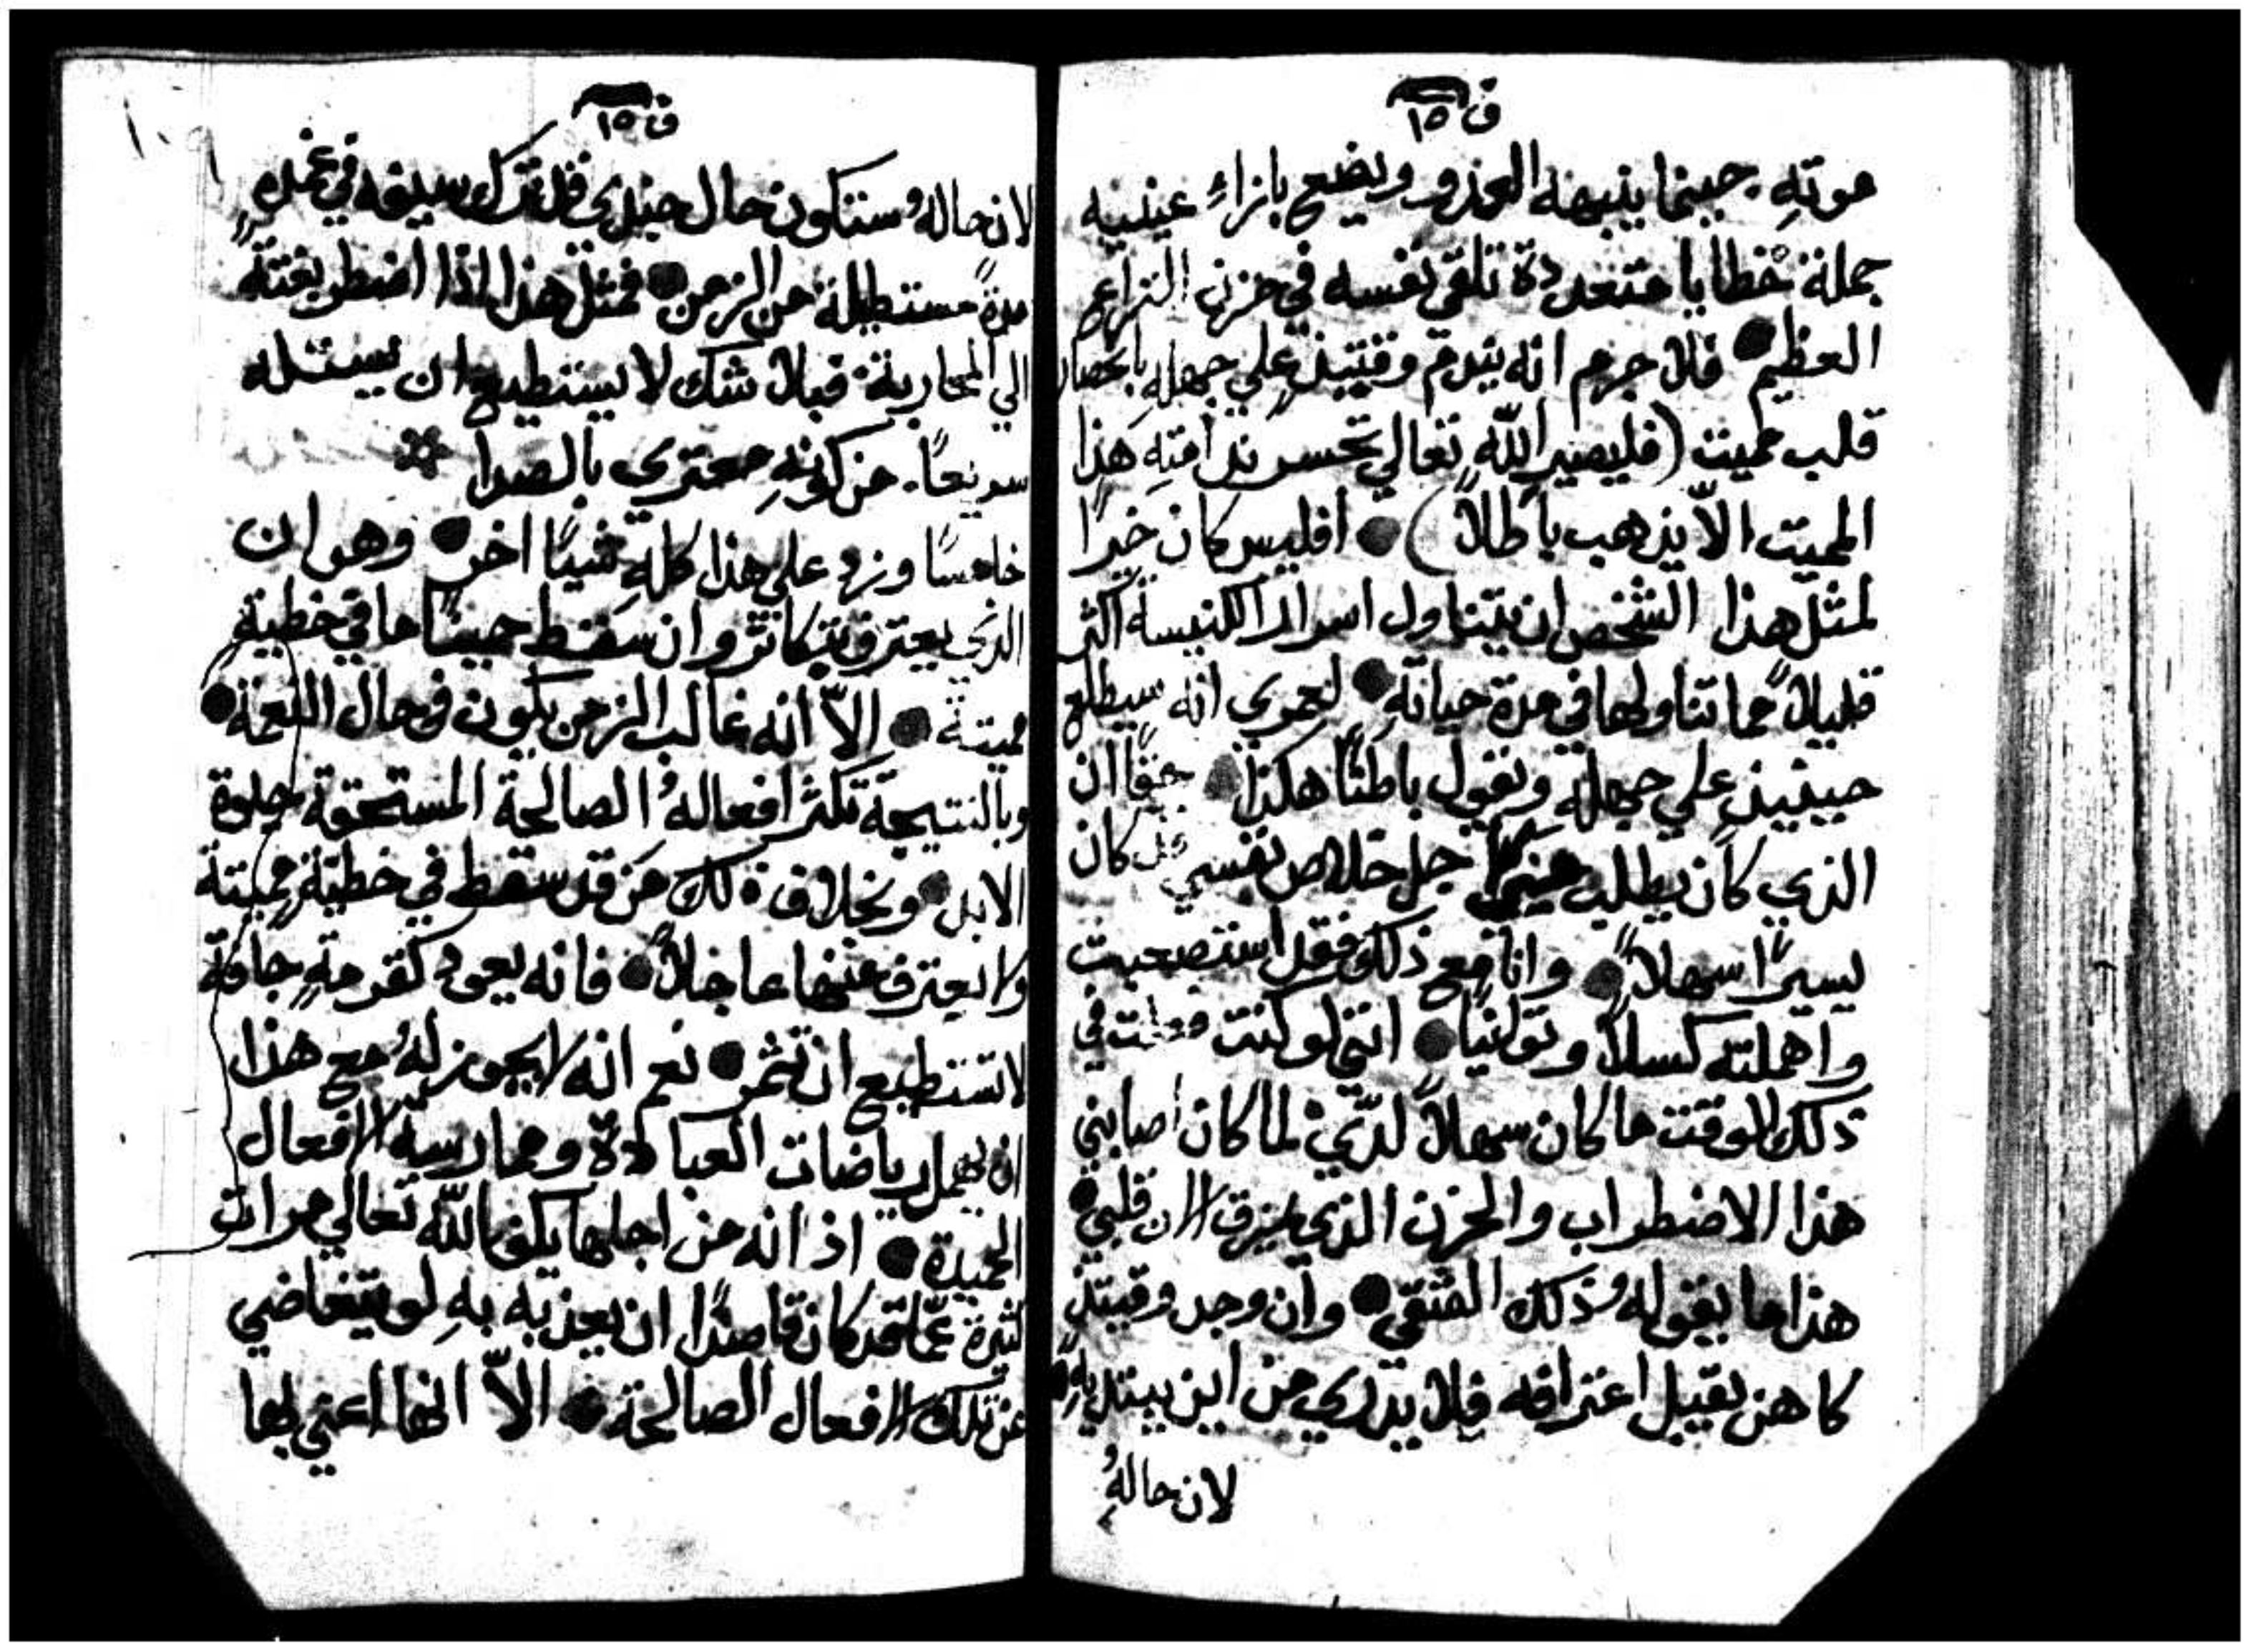 ق ١٥
موته. حينما ينبهه العدو ويضع بازاءِ عينيه
جملة خطايا متعددة تلقي نفسه في حزن النزاع
العظيم فلا جرم انه يندم وقتيذٍ علي جهله بانحصار
قلب مميت (فليصير اللّه تعالي تحسر ندامته هذا
المميت الاّ يذهب باطلاً) افليس كان خيرًا
لمثل هذا الشخص ان يتناول اسرار الكنيسه اكثر
قليلاً مما تناولها في مدة حياته لعمري انه سيطلع
حينيذٍ علي جهله ويقول باطنًا هكذا حقًا ان
الذي كان يطلب جل خلاص نفسي قد كان
يسيرًا سهلاً وانا مع ذلك فقد استصعبت
واهملته كسلاً وتوانيًا انني لو كنت فعلت في
ذلك الوقت ما كان سهلاً لديّ لما كان اصابني
هذا الاضطراب والحزن الذي يمزق الان قلبي
هذا ما يقوله ذلك الشقي وان وجد وقتيذٍ
كاهن يقبل اعترافه فلا يدري من اين يبتدي به
لان حالهُ
ق ١٥
لان حاله ستكون حال جندي قد ترك سيفه في غمده
مدةً مستطيلة من الزمن فمثل هذا اذا اضطر بغتةً
الي المحاربة فبلا شك لا يستطيع ان يستله
سريعًا. من كونهِ معتري بالصدا
خامسًا وزد علي هذا كلهِ شيئًا اخر وهو ان
الذي يعترف بتكاثر وان سقط حينًا ما في خطيةٍ
مميتة الاّ انه غالب الزمن يكون في حال النعمة
وبالنتيجة تكثر افعالهُ الصالحة المستحقة حلوة
الابد وبخلاف ذلك من قد سقط في خطيةٍ مميتة
ولا يعترف عنها عاجلاً فانه يعود كقرمةٍ جافة
لا تستطيع ان تثمر نعم انه لا يجوز لهُ مع هذا
ان يهمل رياضات العبادة وممارسة الافعال
الحميدة اذ انه من اجلها يكف اللّه تعالي مرات
كثيرة عمّا قد كان قاصدًا ان يعذبه بهِ لو يتغاضي
عن تلك الافعال الصالحة الاّ انها اعني بها